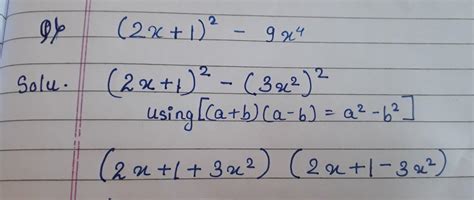 Q6 (2x+1)² - 9x⁴
Solu. (2x+1)² - (3x²)²
using [(a+b)(a-b) = a² - b²]
(2x+1+3x²) (2x+1-3x²)